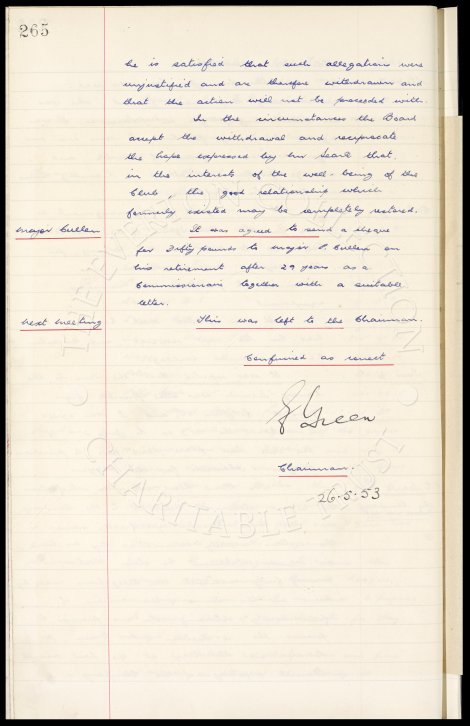 265
he is satisfied that such allegations were
unjustified and are therefore withdrawn and
that the action will not be proceeded with.
In the circumstances the Board
accept the withdrawal and reciprocate
the hope expressed by Mr Searle that,
in the interests of the well-being of the
Club, the good relationship which
formerly existed may be completely restored.
Major Cullen
It was agreed to send a cheque
for Fifty pounds to Major P. Cullen on
his retirement after 29 years as a
Commissionaire together with a suitable
letter.
Next meeting
This was left to the Chairman.
Confirmed as correct
Green
Chairman.
26.5.53
THE EVERTON COLLECTION
CHARITABLE TRUST